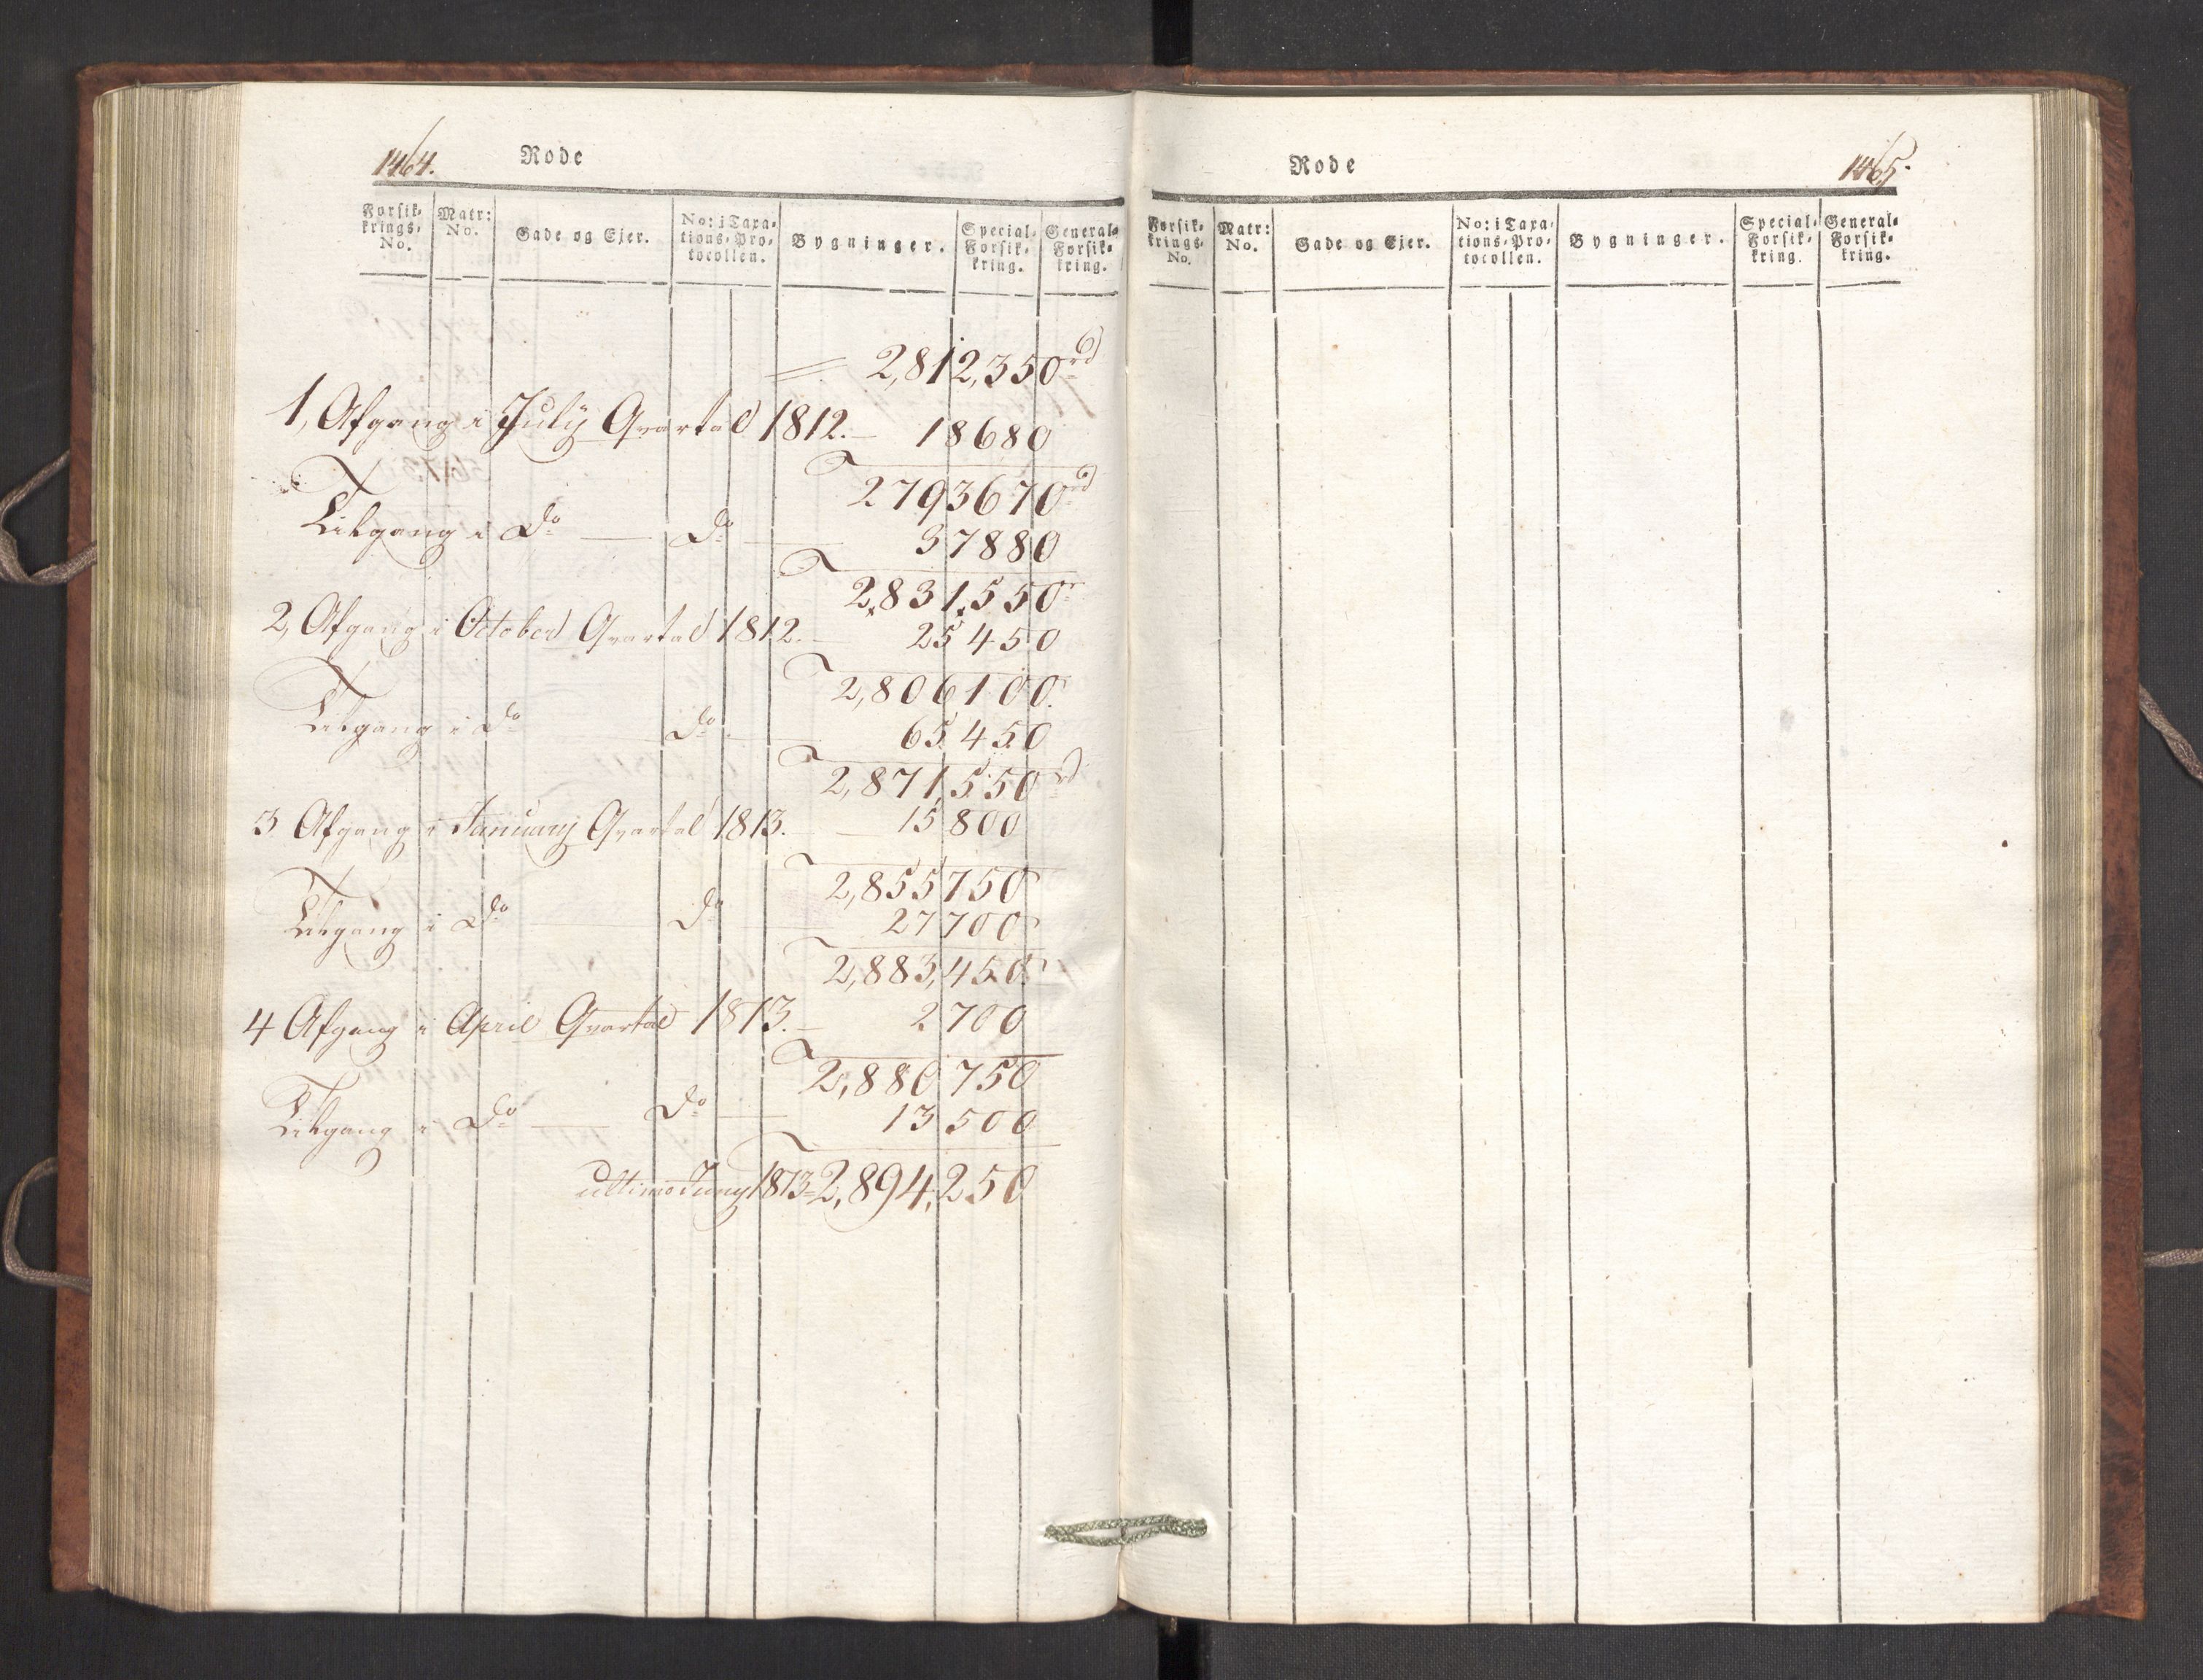 1464.
Rode
Forsik-
krings-
No.
Matr:
No.
Gade og Ejer.
No: i Taxa-
tions-Pro-
tocollen.
Bygninger.
Special-
Forsik-
kring.
General-
Forsik-
kring.
= 2,812,350 rd
1, Afgang i Julij Qvartal 1812. — 18680
2793670 rd
Tilgang i Do — Do — 37880
2,831,550 r
2, Afgang i October Qvartal 1812. — 25450
2,806100.
Tilgang i Do Do — 65450
2,871,550 rd
3 Afgang i Januarij Qvartal 1813. — 15800
2,855750
Tilgang i Do Do 27700
2,883,450
4 Afgang i April Qvartal 1813. — 2700
2,880750
Tilgang i Do — Do — 13500
ultimo Junij 1813 = 2,894,250
Rode
1465.
Forsik-
krings-
No.
Matr:
No.
Gade og Ejer.
No: i Taxa-
tions-Pro-
tocollen.
Bygninger.
Special-
Forsik-
kring.
General-
Forsik-
kring.